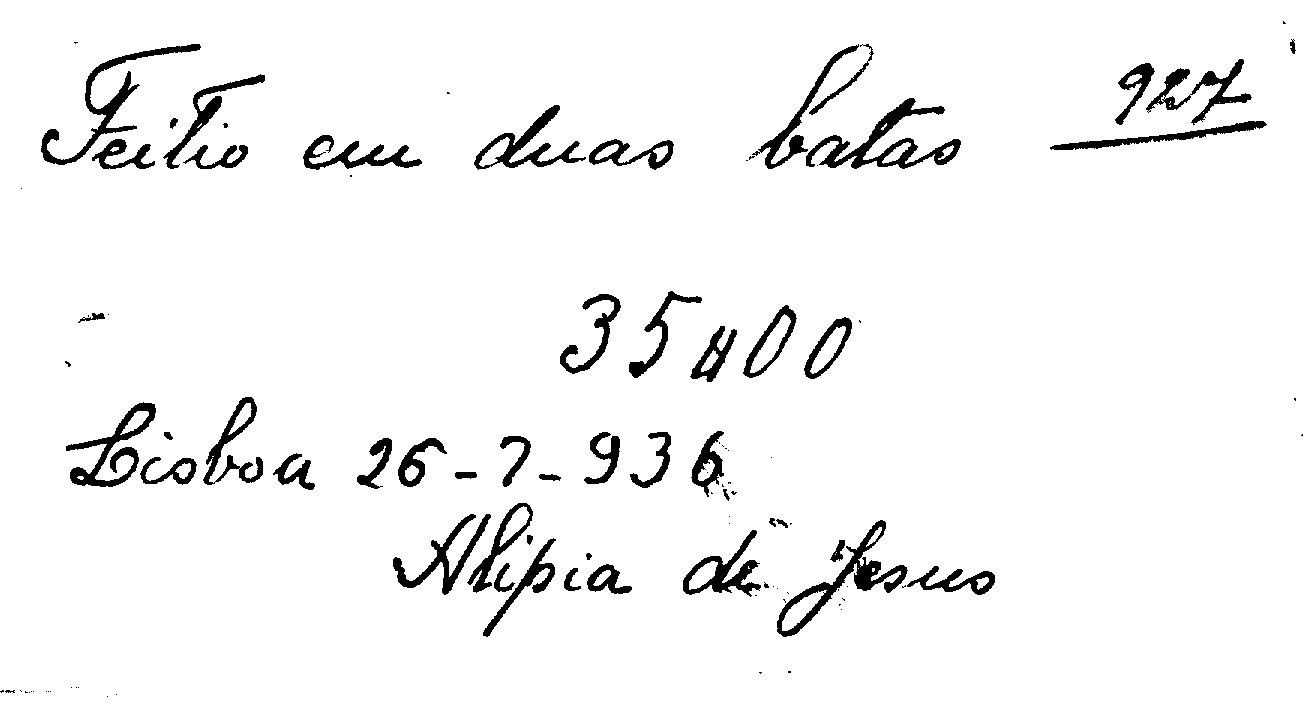 Feitio em duas batas 927
35$00
Lisboa 26-7-936
Alipia de Jesus